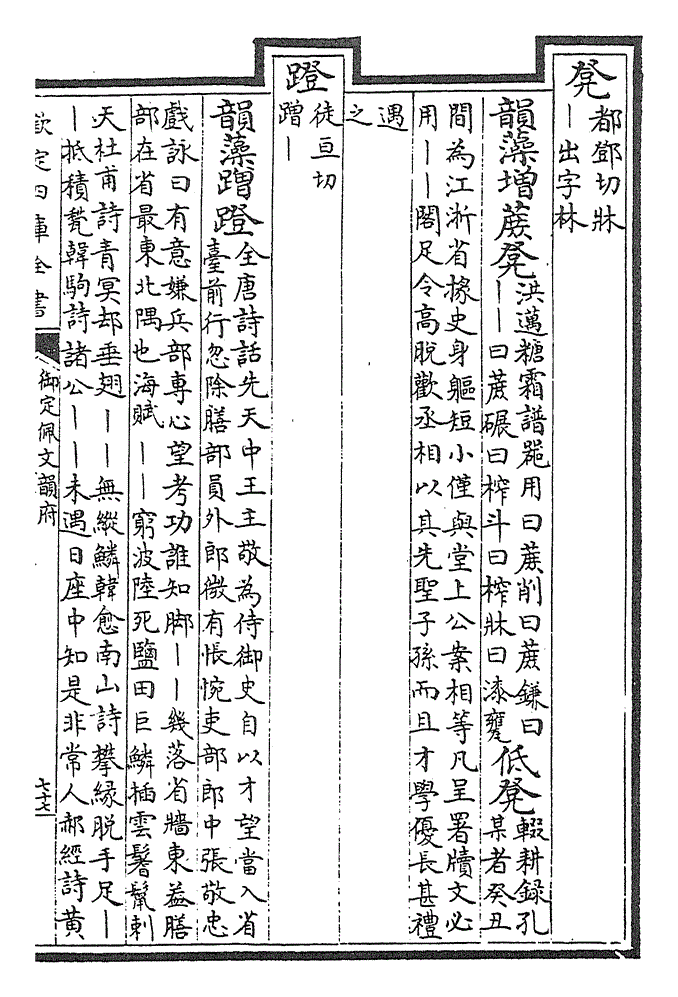 凳
都鄧切牀
丨出字林
韻藻增蔗凳
洪邁糖霜譜器用曰蔗削曰蔗鎌曰
丨丨曰蔗碾曰榨斗曰榨牀曰漆甕
低凳
輟耕錄孔
某者癸丑
間為江浙省掾史身軀短小僅與堂上公案相等凡呈署牘文必
用丨丨閣足令高脫歡丞相以其先聖子孫而且才學優長甚禮
遇
之
蹬
徒亘切
蹭丨
韻藻蹭蹬
全唐詩話先天中王主敬為侍御史自以才望當入省
臺前行忽除膳部員外郎微有悵惋吏部郎中張敬忠
戲詠曰有意嫌兵部專心望考功誰知脚丨丨幾落省牆東益膳
部在省最東北隅也海賦丨丨窮波陸死鹽田巨鱗插雲鬐鬣刺
天杜甫詩青冥却垂翅丨丨無縱鱗韓愈南山詩攀緣脫手足丨
丨抵積甃韓駒詩諸公丨丨未遇日座中知是非常人郝經詩黃
欽定四庫全書
御定佩文韻府
七十七